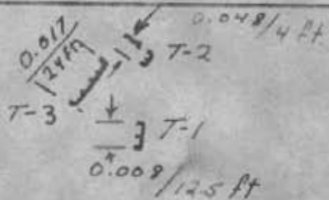 0.048/4 ft
0.017
24 ft
T-2
T-3
T-1
0.008/12.5 ft